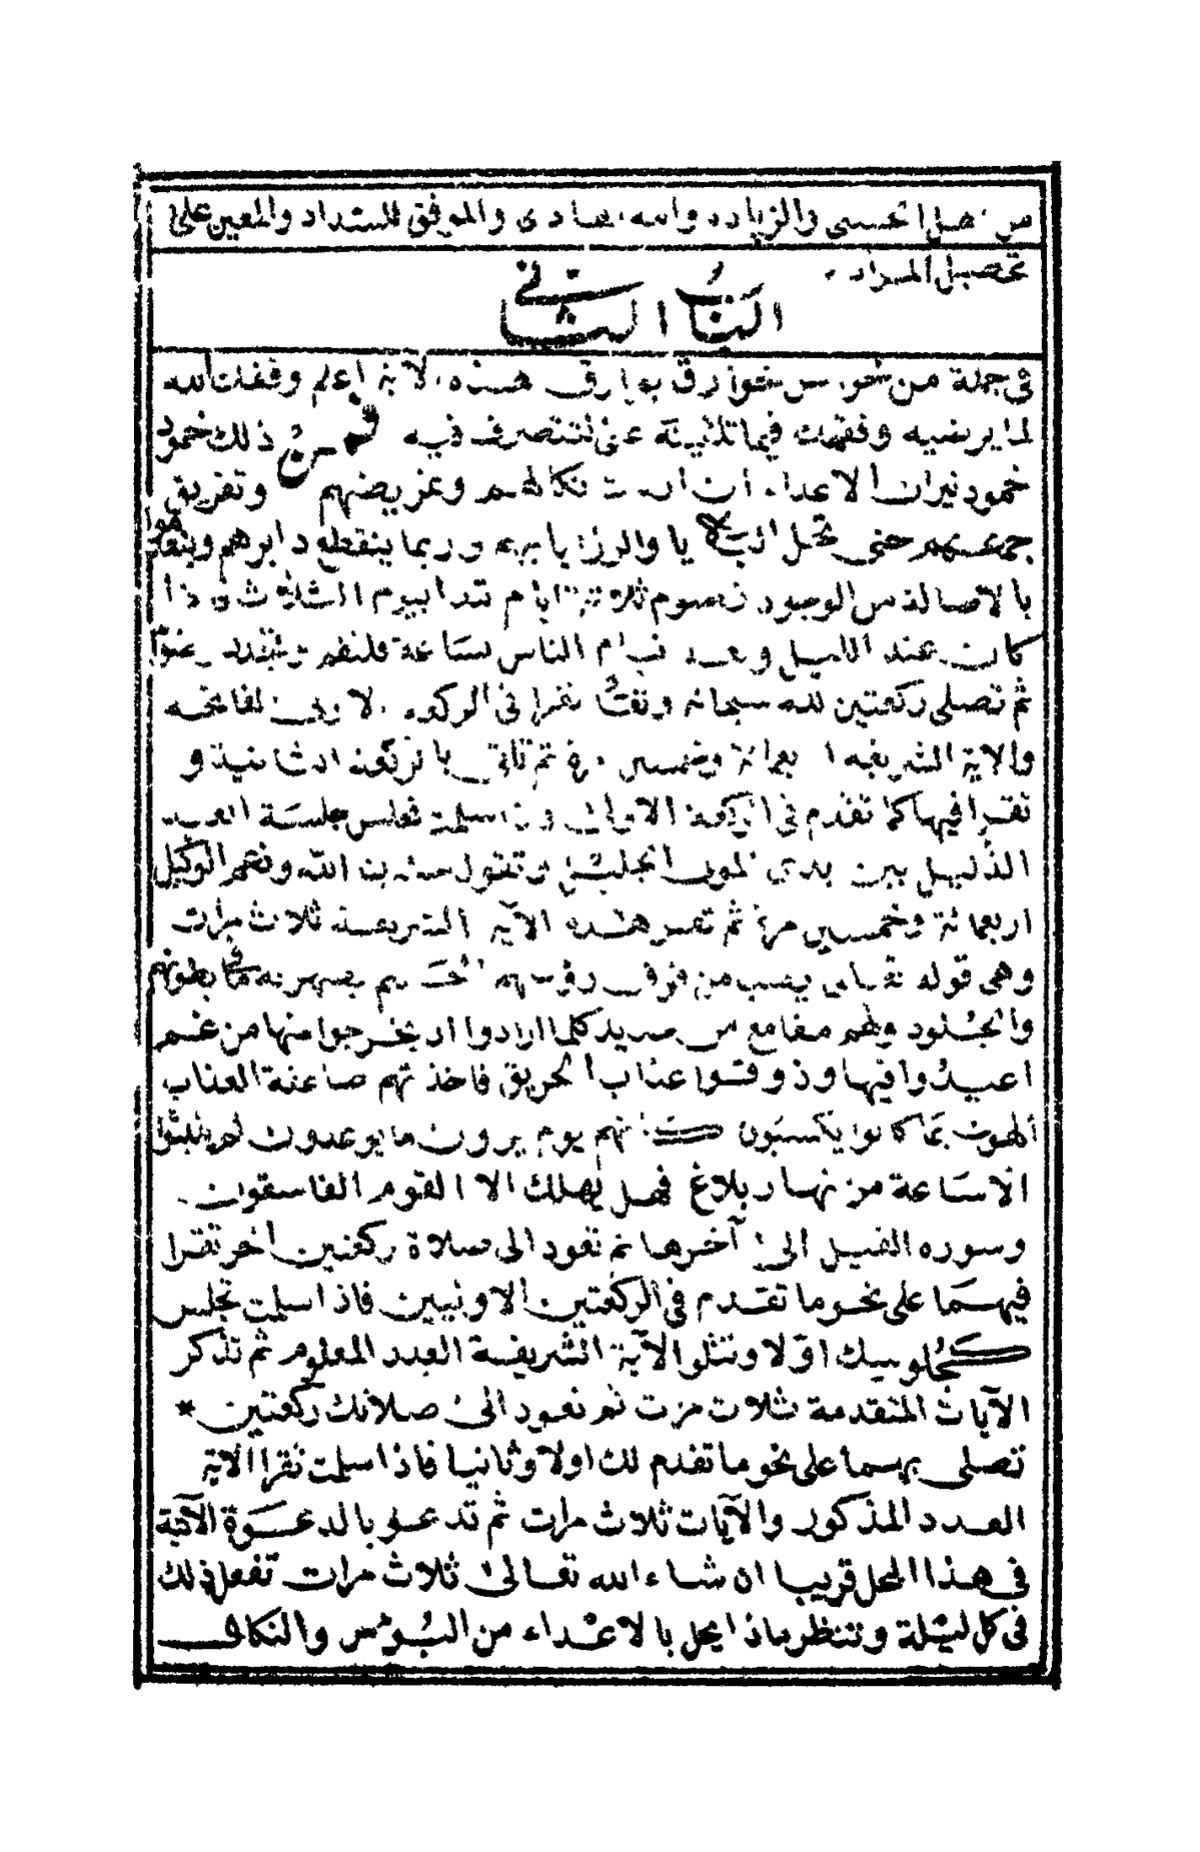 الحسنى والزيادة والله الهادى والموفق للسداد والمعين على
تحصيل المراد
الباب الثانى
فى جملة من خوارق هذه الآية اعلم وفقك الله
لما يرضيه وفهمك فيما تلقيته عنى لتتصرف فيه فمن ذلك خمود
خمود نيران الاعداء وتمزيضهم وتفريق
جمعهم حتى تحل البلايا والرزايا بهم وربما ينقطع دابرهم
بالاصالة من الوجود تصوم ثلاثة ايام تبدا بيوم الثلاث فاذا
كان عند الليل وبعد نيام الناس بساعة فلتقم
ثم تصلى ركعتين لله سبحانه تقرا فى الركعة الاولى الفاتحة
والاية الشريفة اربعمائة وخمسين مرة ثم تاتى بالركعة الثانية و
تقرا فيها كما تقدم فى الركعة الاولى فاذا سلمت فاجلس جلسة العبد
الذليل بين يدى المولى الجليل وتقول حسبنا الله ونعم الوكيل
اربعمائة وخمسين مرة ثم تقرا هذه الآية الشريفة ثلاث مرات
وهى قوله تعالى يصب من فوق رؤسهم الحميم يصهر به ما فى بطونهم
والجلود ولهم مقامع من حديد كلما ارادوا ان يخرجوا منها من غم
اعيدوا فيها وذوقوا عذاب الحريق فاخذتهم صاعقة العذاب
الهون بما كانوا يكسبون كانهم يوم يرون ما يوعدون لم يلبثوا
الا ساعة من نهار بلاغ فهل يهلك الا القوم الفاسقون
وسورة الفيل الى آخرها ثم تعود الى صلاة ركعتين اخر تقرا
فيهما على نحو ما تقدم فى الركعتين الاوليين فاذا سلمت تجلس
كجلوسك اولا وتتلو الآية الشريفة العدد المعلوم ثم تذكر
الآيات المتقدمة ثلاث مرت ثم تعود الى صلاتك ركعتين *
تصلى بهما على نحو ما تقدم لك اولا وثانيا فاذا سلمت تقرا الاية
العدد المذكور والآيات ثلاث مرات ثم تدعو بالدعوة الآتية
فى هذا المحل قريبا ان شاء الله تعالى ثلاث مرات تفعل ذلك
فى كل ليلة وتنتظر ماذا يحل بالاعداء من البؤس والنكال